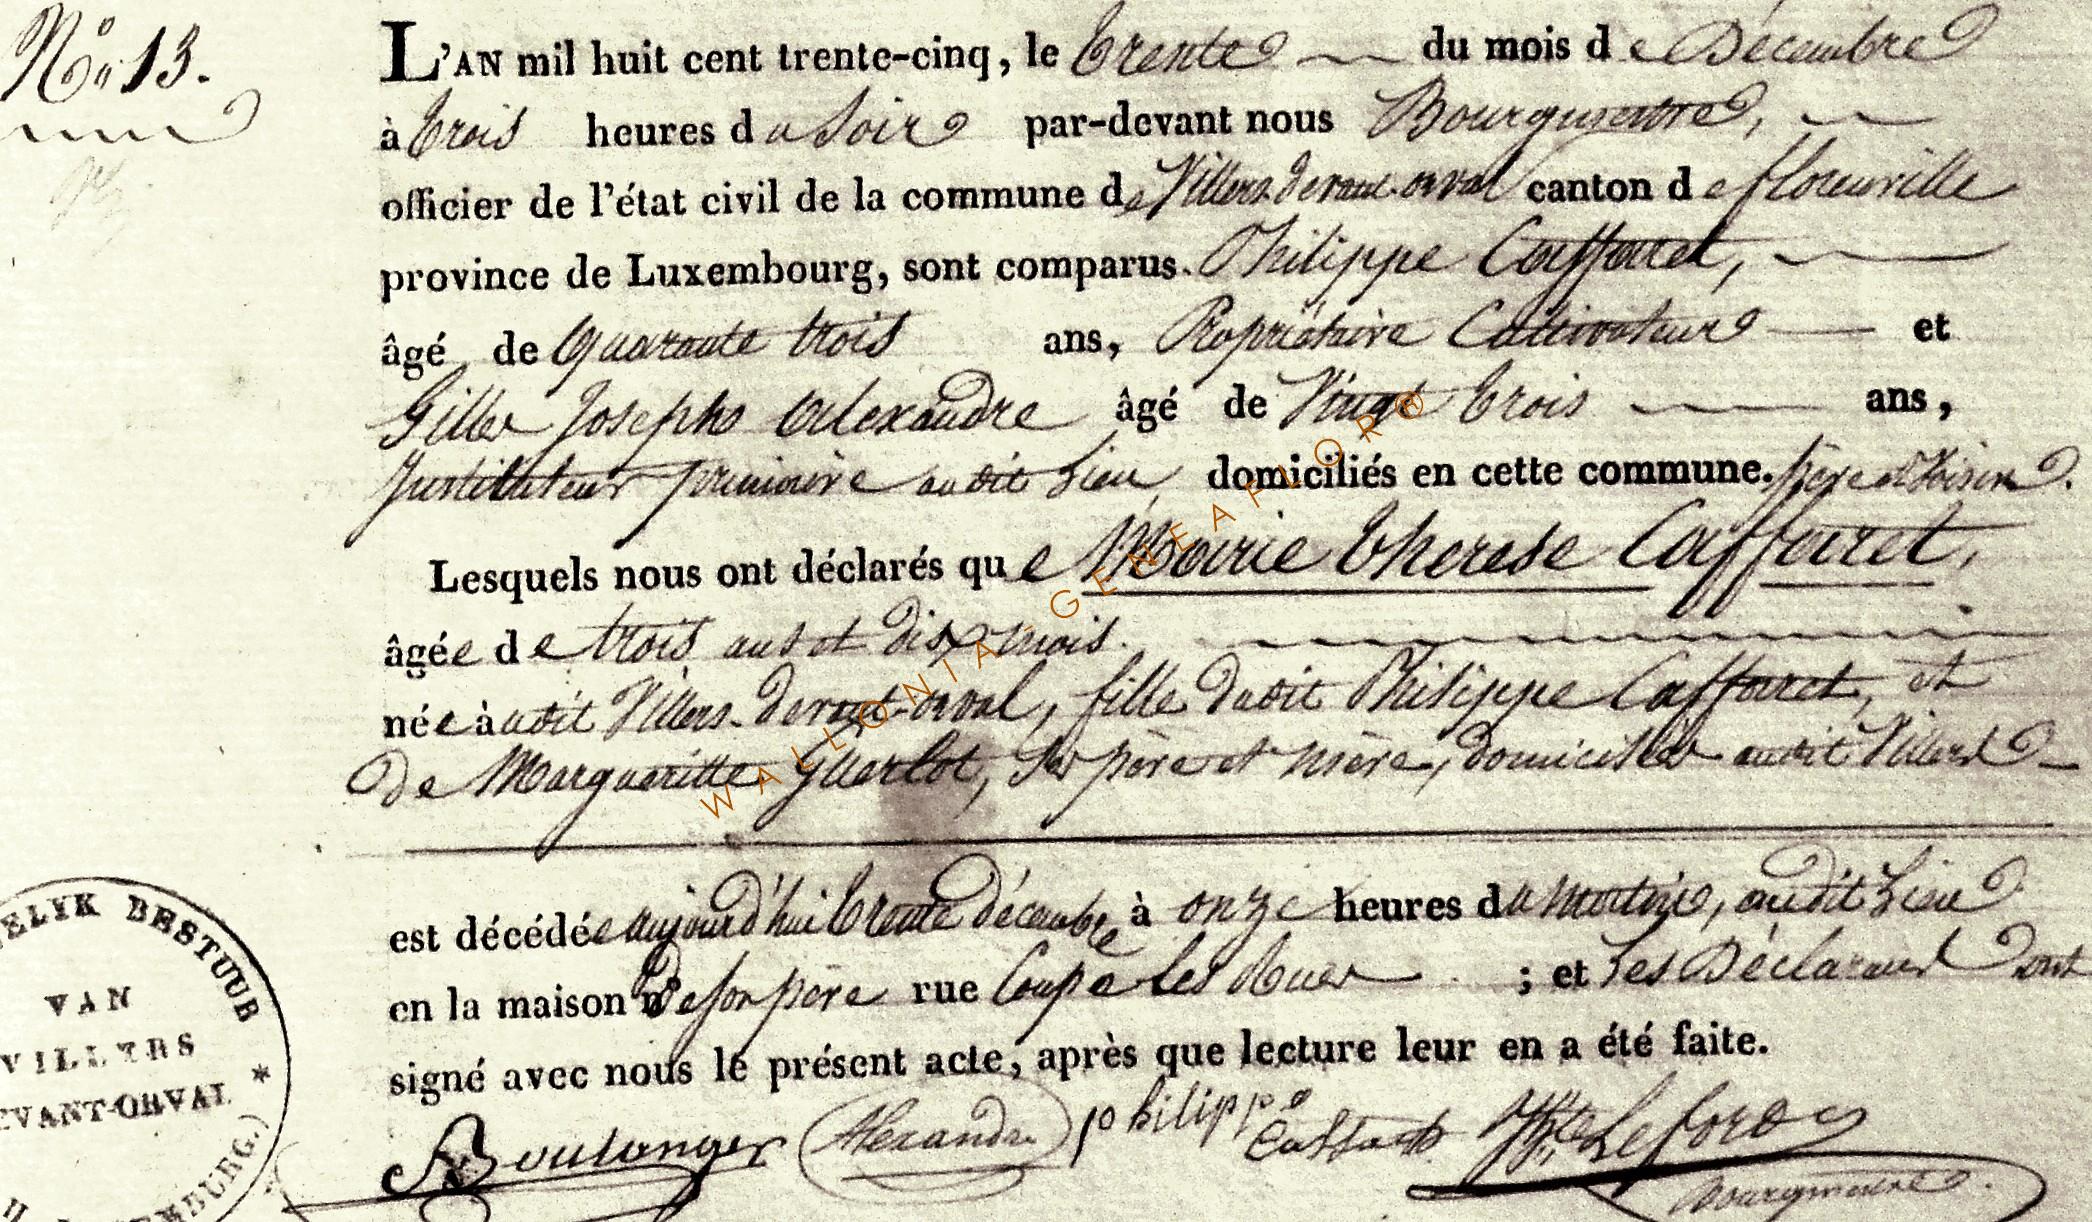 No. 13.
L'AN mil huit cent trente-cinq, le trente du mois de Décembre
à trois heures du Soir par-devant nous Bourgmestre,
officier de l'état civil de la commune de Villers-devant-orval canton de florenville
province de Luxembourg, sont comparus. Philippe Caffaret,
âgé de quarante trois ans, Propriétaire Cultivateur et
Gilles Joseph Alexandre âgé de Vingt trois ans,
Instituteur primaire audit Lieu, domiciliés en cette commune. père et Voisin.
Lesquels nous ont déclarés que Marie therese Caffaret,
âgée de trois ans et dix mois.
née audit Villers-devant-orval, fille dudit Philippe Caffaret, et
de Margueritte Guerlot, Ses père et mère, domiciliés audit Villers
est décédée aujourd'hui trente décembre à onze heures du matin, audit Lieu
en la maison de son père rue Coupe les Rues ; et les Déclarans ont
signé avec nous le présent acte, après que lecture leur en a été faite.
Boulanger Alexandre philippe
Bourgmestre.
ELYK BESTUUR
VAN
VILLERS
EVANT-ORVAL *
EMBURG.)
WALLONIA GENEAFLOR®